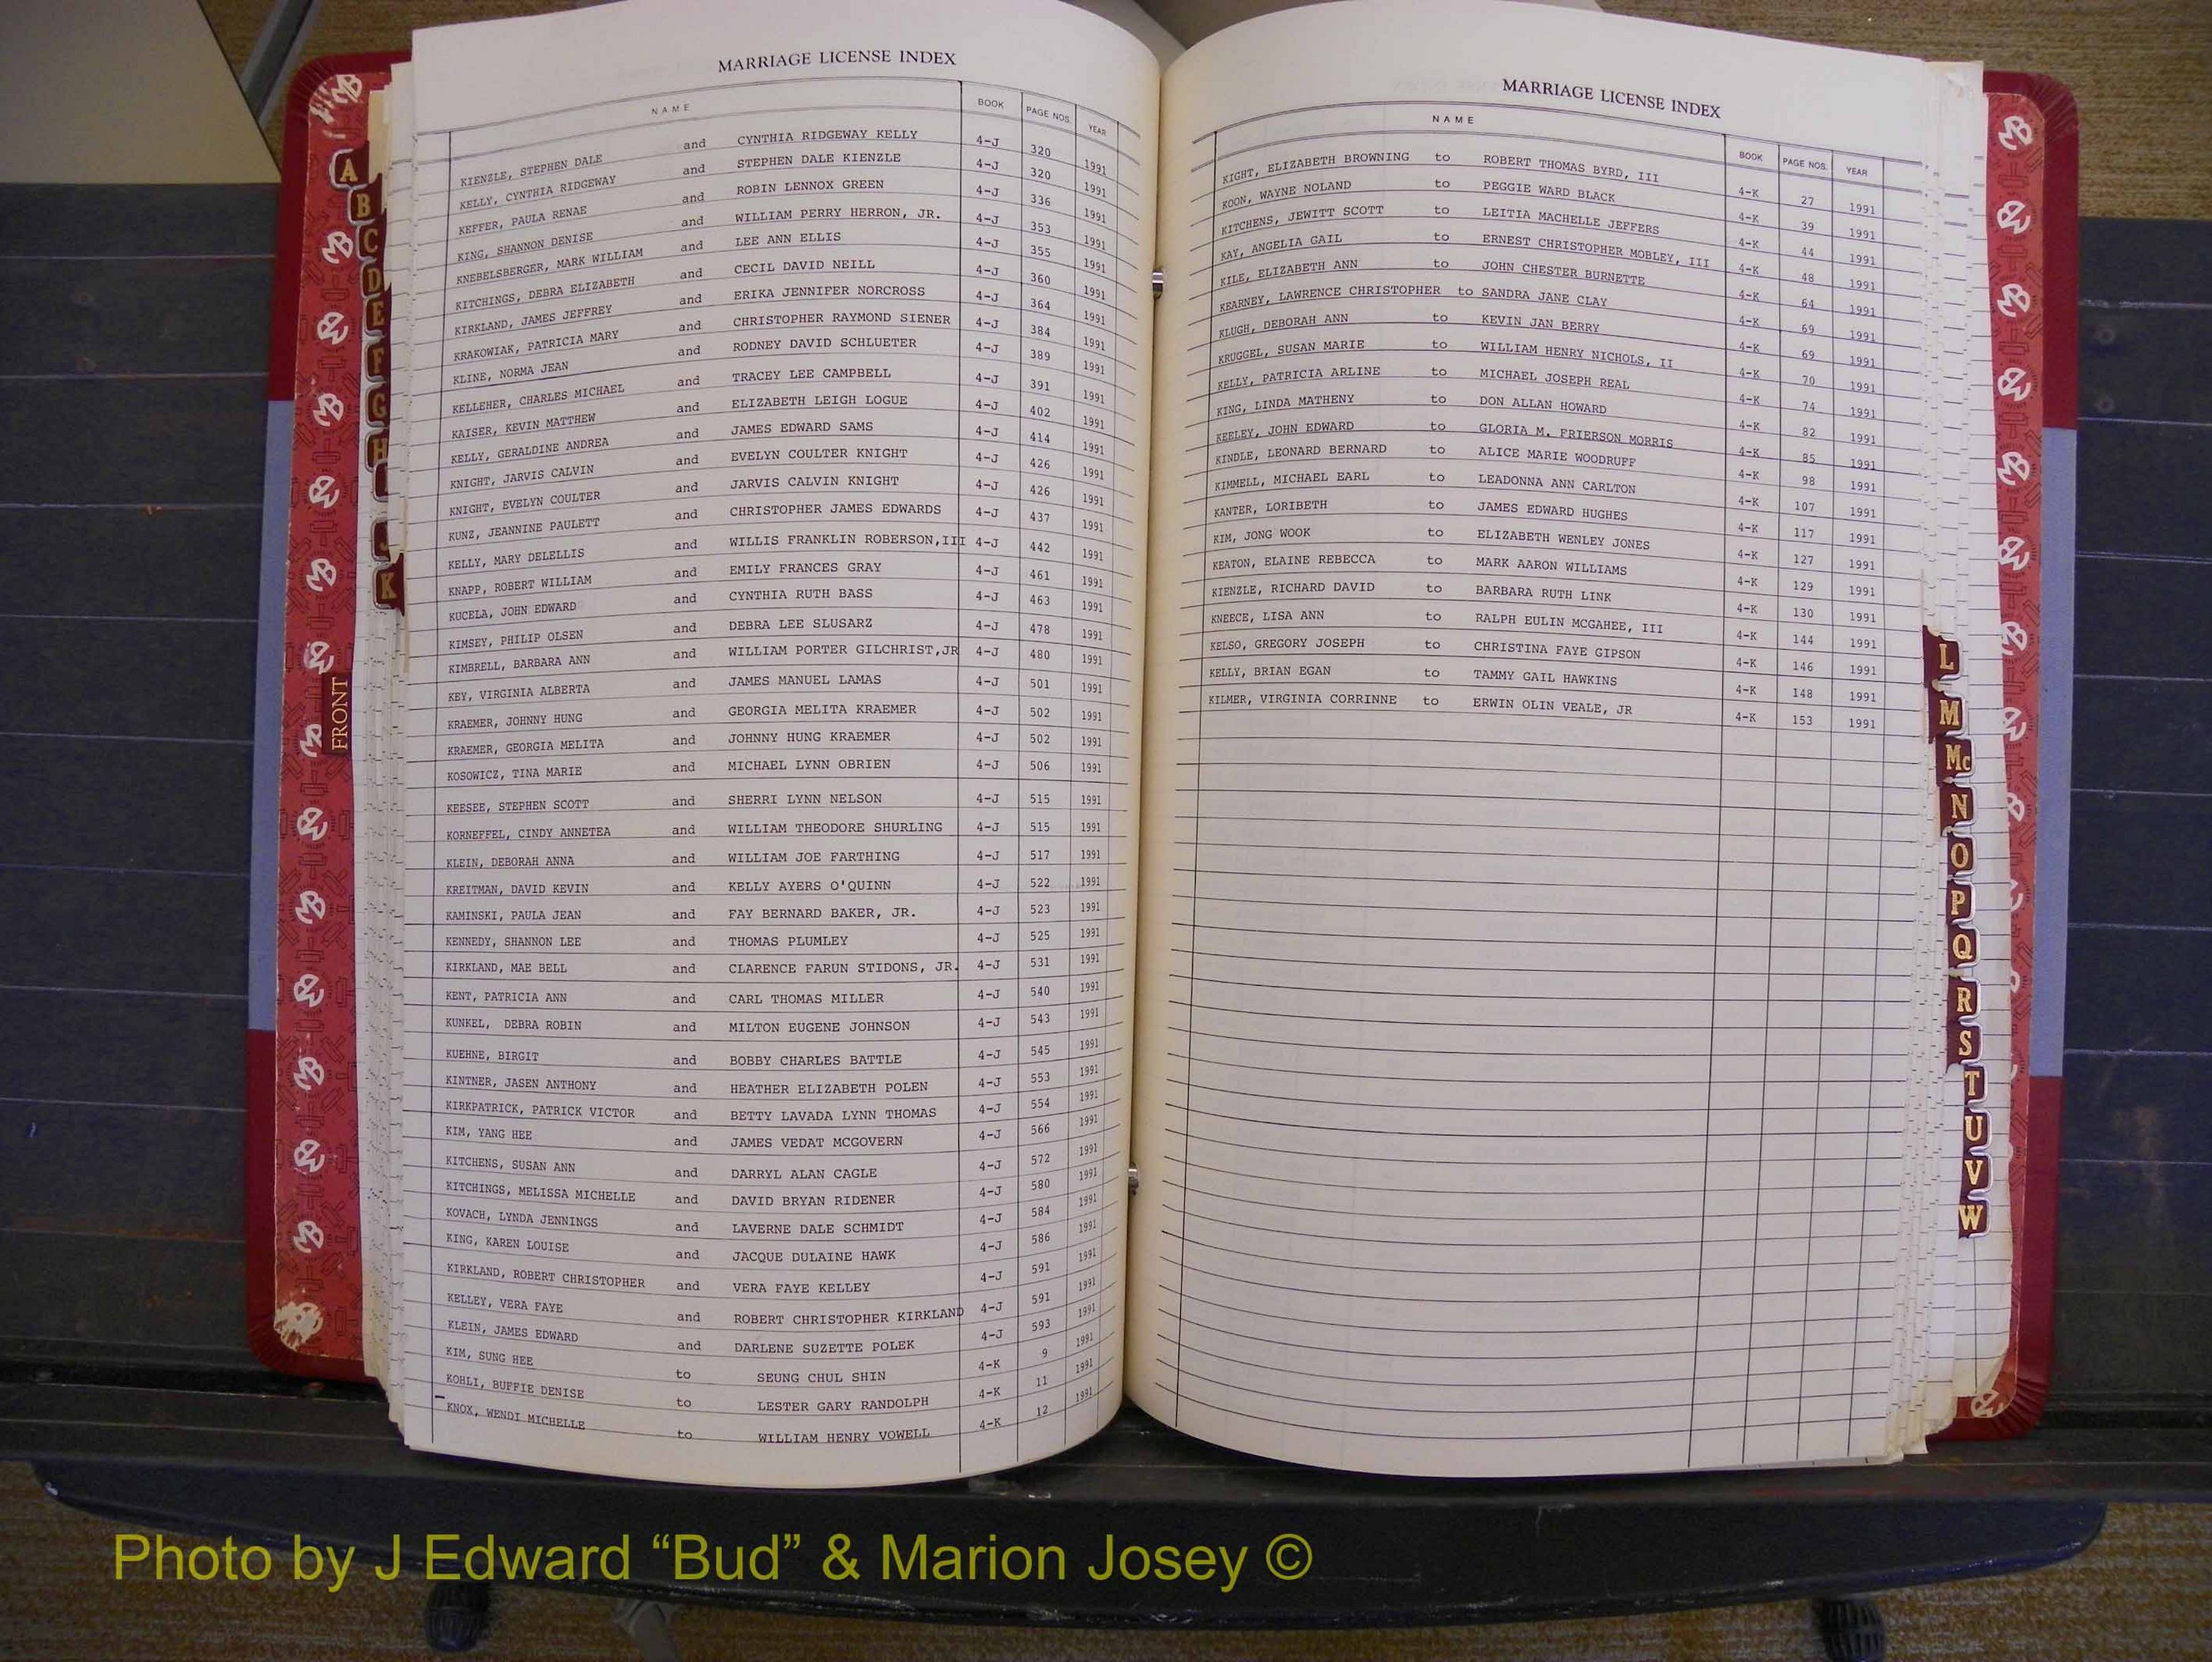 MARRIAGE LICENSE INDEX
NAME BOOK PAGE NOS. YEAR
KIENZLE, STEPHEN DALE and CYNTHIA RIDGEWAY KELLY 4-J 320 1991
KELLY, CYNTHIA RIDGEWAY and STEPHEN DALE KIENZLE 4-J 320 1991
KEFFER, PAULA RENAE and ROBIN LENNOX GREEN 4-J 336 1991
KING, SHANNON DENISE and WILLIAM PERRY HERRON, JR. 4-J 353 1991
KNEBELSBERGER, MARK WILLIAM and LEE ANN ELLIS 4-J 355 1991
KITCHINGS, DEBRA ELIZABETH and CECIL DAVID NEILL 4-J 360 1991
KIRKLAND, JAMES JEFFREY and ERIKA JENNIFER NORCROSS 4-J 364 1991
KRAKOWIAK, PATRICIA MARY and CHRISTOPHER RAYMOND SIENER 4-J 384 1991
KLINE, NORMA JEAN and RODNEY DAVID SCHLUETER 4-J 389 1991
KELLEHER, CHARLES MICHAEL and TRACEY LEE CAMPBELL 4-J 391 1991
KAISER, KEVIN MATTHEW and ELIZABETH LEIGH LOGUE 4-J 402 1991
KELLY, GERALDINE ANDREA and JAMES EDWARD SAMS 4-J 414 1991
KNIGHT, JARVIS CALVIN and EVELYN COULTER KNIGHT 4-J 426 1991
KNIGHT, EVELYN COULTER and JARVIS CALVIN KNIGHT 4-J 426 1991
KUNZ, JEANNINE PAULETT and CHRISTOPHER JAMES EDWARDS 4-J 437 1991
KELLY, MARY DELELLIS and WILLIS FRANKLIN ROBERSON,III 4-J 442 1991
KNAPP, ROBERT WILLIAM and EMILY FRANCES GRAY 4-J 461 1991
KUCELA, JOHN EDWARD and CYNTHIA RUTH BASS 4-J 463 1991
KIMSEY, PHILIP OLSEN and DEBRA LEE SLUSARZ 4-J 478 1991
KIMBRELL, BARBARA ANN and WILLIAM PORTER GILCHRIST,JR 4-J 480 1991
KEY, VIRGINIA ALBERTA and JAMES MANUEL LAMAS 4-J 501 1991
KRAEMER, JOHNNY HUNG and GEORGIA MELITA KRAEMER 4-J 502 1991
KRAEMER, GEORGIA MELITA and JOHNNY HUNG KRAEMER 4-J 502 1991
KOSOWICZ, TINA MARIE and MICHAEL LYNN OBRIEN 4-J 506 1991
KEESEE, STEPHEN SCOTT and SHERRI LYNN NELSON 4-J 515 1991
KORNEFFEL, CINDY ANNETEA and WILLIAM THEODORE SHURLING 4-J 515 1991
KLEIN, DEBORAH ANNA and WILLIAM JOE FARTHING 4-J 517 1991
KREITMAN, DAVID KEVIN and KELLY AYERS O'QUINN 4-J 522 1991
KAMINSKI, PAULA JEAN and FAY BERNARD BAKER, JR. 4-J 523 1991
KENNEDY, SHANNON LEE and THOMAS PLUMLEY 4-J 525 1991
KIRKLAND, MAE BELL and CLARENCE FARUN STIDONS, JR. 4-J 531 1991
KENT, PATRICIA ANN and CARL THOMAS MILLER 4-J 540 1991
KUNKEL, DEBRA ROBIN and MILTON EUGENE JOHNSON 4-J 543 1991
KUEHNE, BIRGIT and BOBBY CHARLES BATTLE 4-J 545 1991
KINTNER, JASEN ANTHONY and HEATHER ELIZABETH POLEN 4-J 553 1991
KIRKPATRICK, PATRICK VICTOR and BETTY LAVADA LYNN THOMAS 4-J 554 1991
KIM, YANG HEE and JAMES VEDAT MCGOVERN 4-J 566 1991
KITCHENS, SUSAN ANN and DARRYL ALAN CAGLE 4-J 572 1991
KITCHINGS, MELISSA MICHELLE and DAVID BRYAN RIDENER 4-J 580 1991
KOVACH, LYNDA JENNINGS and LAVERNE DALE SCHMIDT 4-J 584 1991
KING, KAREN LOUISE and JACQUE DULAINE HAWK 4-J 586 1991
KIRKLAND, ROBERT CHRISTOPHER and VERA FAYE KELLEY 4-J 591 1991
KELLEY, VERA FAYE and ROBERT CHRISTOPHER KIRKLAND 4-J 591 1991
KLEIN, JAMES EDWARD and DARLENE SUZETTE POLEK 4-J 593 1991
KIM, SUNG HEE to SEUNG CHUL SHIN 4-K 9 1991
KOHLI, BUFFIE DENISE to LESTER GARY RANDOLPH 4-K 11 1991
KNOX, WENDI MICHELLE to WILLIAM HENRY VOWELL 4-K 12 1991
MARRIAGE LICENSE INDEX
NAME BOOK PAGE NOS. YEAR
KIGHT, ELIZABETH BROWNING to ROBERT THOMAS BYRD, III 4-K 27 1991
KOON, WAYNE NOLAND to PEGGIE WARD BLACK 4-K 39 1991
KITCHENS, JEWITT SCOTT to LEITIA MACHELLE JEFFERS 4-K 44 1991
KAY, ANGELIA GAIL to ERNEST CHRISTOPHER MOBLEY, III 4-K 48 1991
KILE, ELIZABETH ANN to JOHN CHESTER BURNETTE 4-K 64 1991
KEARNEY, LAWRENCE CHRISTOPHER to SANDRA JANE CLAY 4-K 69 1991
KLUGH, DEBORAH ANN to KEVIN JAN BERRY 4-K 69 1991
KRUGGEL, SUSAN MARIE to WILLIAM HENRY NICHOLS, II 4-K 70 1991
KELLY, PATRICIA ARLINE to MICHAEL JOSEPH REAL 4-K 74 1991
KING, LINDA MATHENY to DON ALLAN HOWARD 4-K 82 1991
KEELEY, JOHN EDWARD to GLORIA M. FRIERSON MORRIS 4-K 85 1991
KINDLE, LEONARD BERNARD to ALICE MARIE WOODRUFF 4-K 98 1991
KIMMELL, MICHAEL EARL to LEADONNA ANN CARLTON 4-K 107 1991
KANTER, LORIBETH to JAMES EDWARD HUGHES 4-K 117 1991
KIM, JONG WOOK to ELIZABETH WENLEY JONES 4-K 127 1991
KEATON, ELAINE REBECCA to MARK AARON WILLIAMS 4-K 129 1991
KIENZLE, RICHARD DAVID to BARBARA RUTH LINK 4-K 130 1991
KNEECE, LISA ANN to RALPH EULIN MCGAHEE, III 4-K 144 1991
KELSO, GREGORY JOSEPH to CHRISTINA FAYE GIPSON 4-K 146 1991
KELLY, BRIAN EGAN to TAMMY GAIL HAWKINS 4-K 148 1991
KILMER, VIRGINIA CORRINNE to ERWIN OLIN VEALE, JR 4-K 153 1991
A
B
C
D
E
F
G
H
J
K
FRONT
L
M
Mc
N
O
P
Q
R
S
T
U
V
W
Photo by J Edward “Bud” & Marion Josey ©